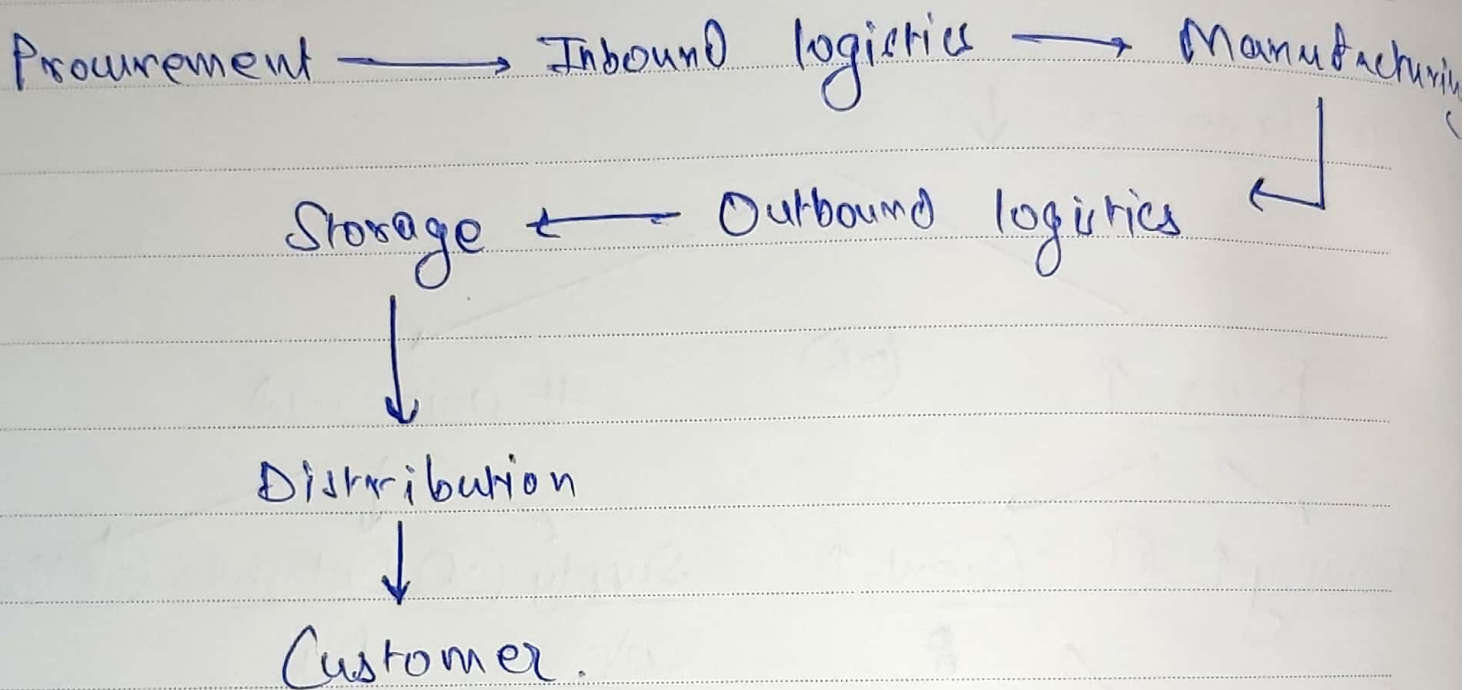 Procurement → Inbound logistics → Manufacturing
Storage ← Outbound logistics
Distribution
Customer.